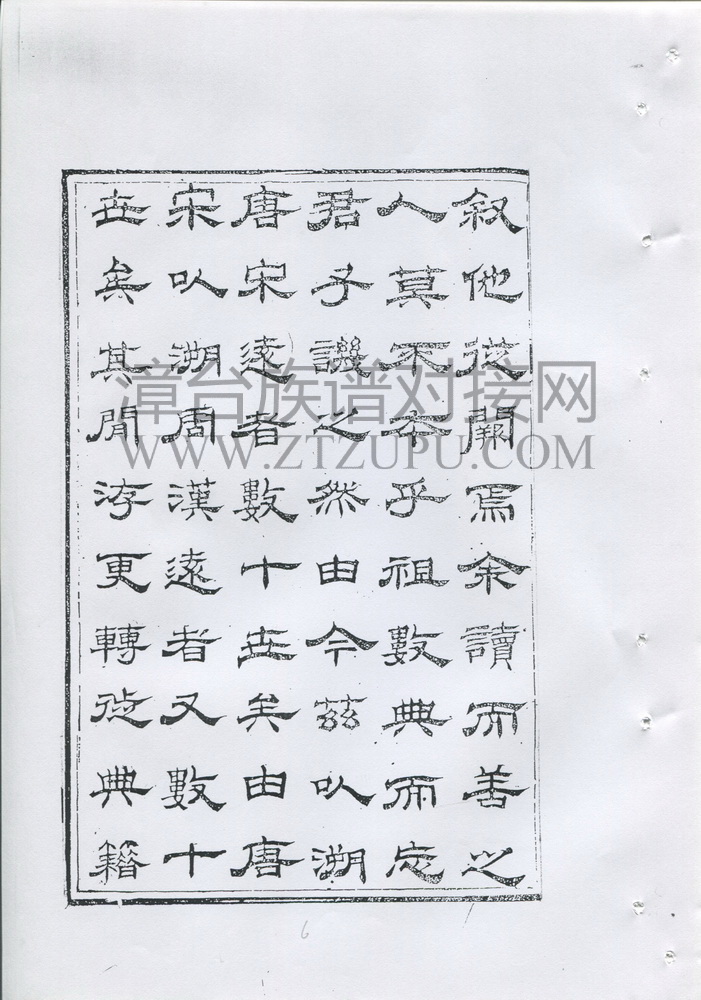 叙他從闕焉余讀而善之
人莫不本乎祖數典而忘
君子譏之然由今茲㕥溯
唐宋遠者數十世矣由唐
宋㕥溯周漢遠者又數十
世矣其閒洊更轉徙典籍
漳台族谱对接网
WWW.ZTZUPU.COM
6